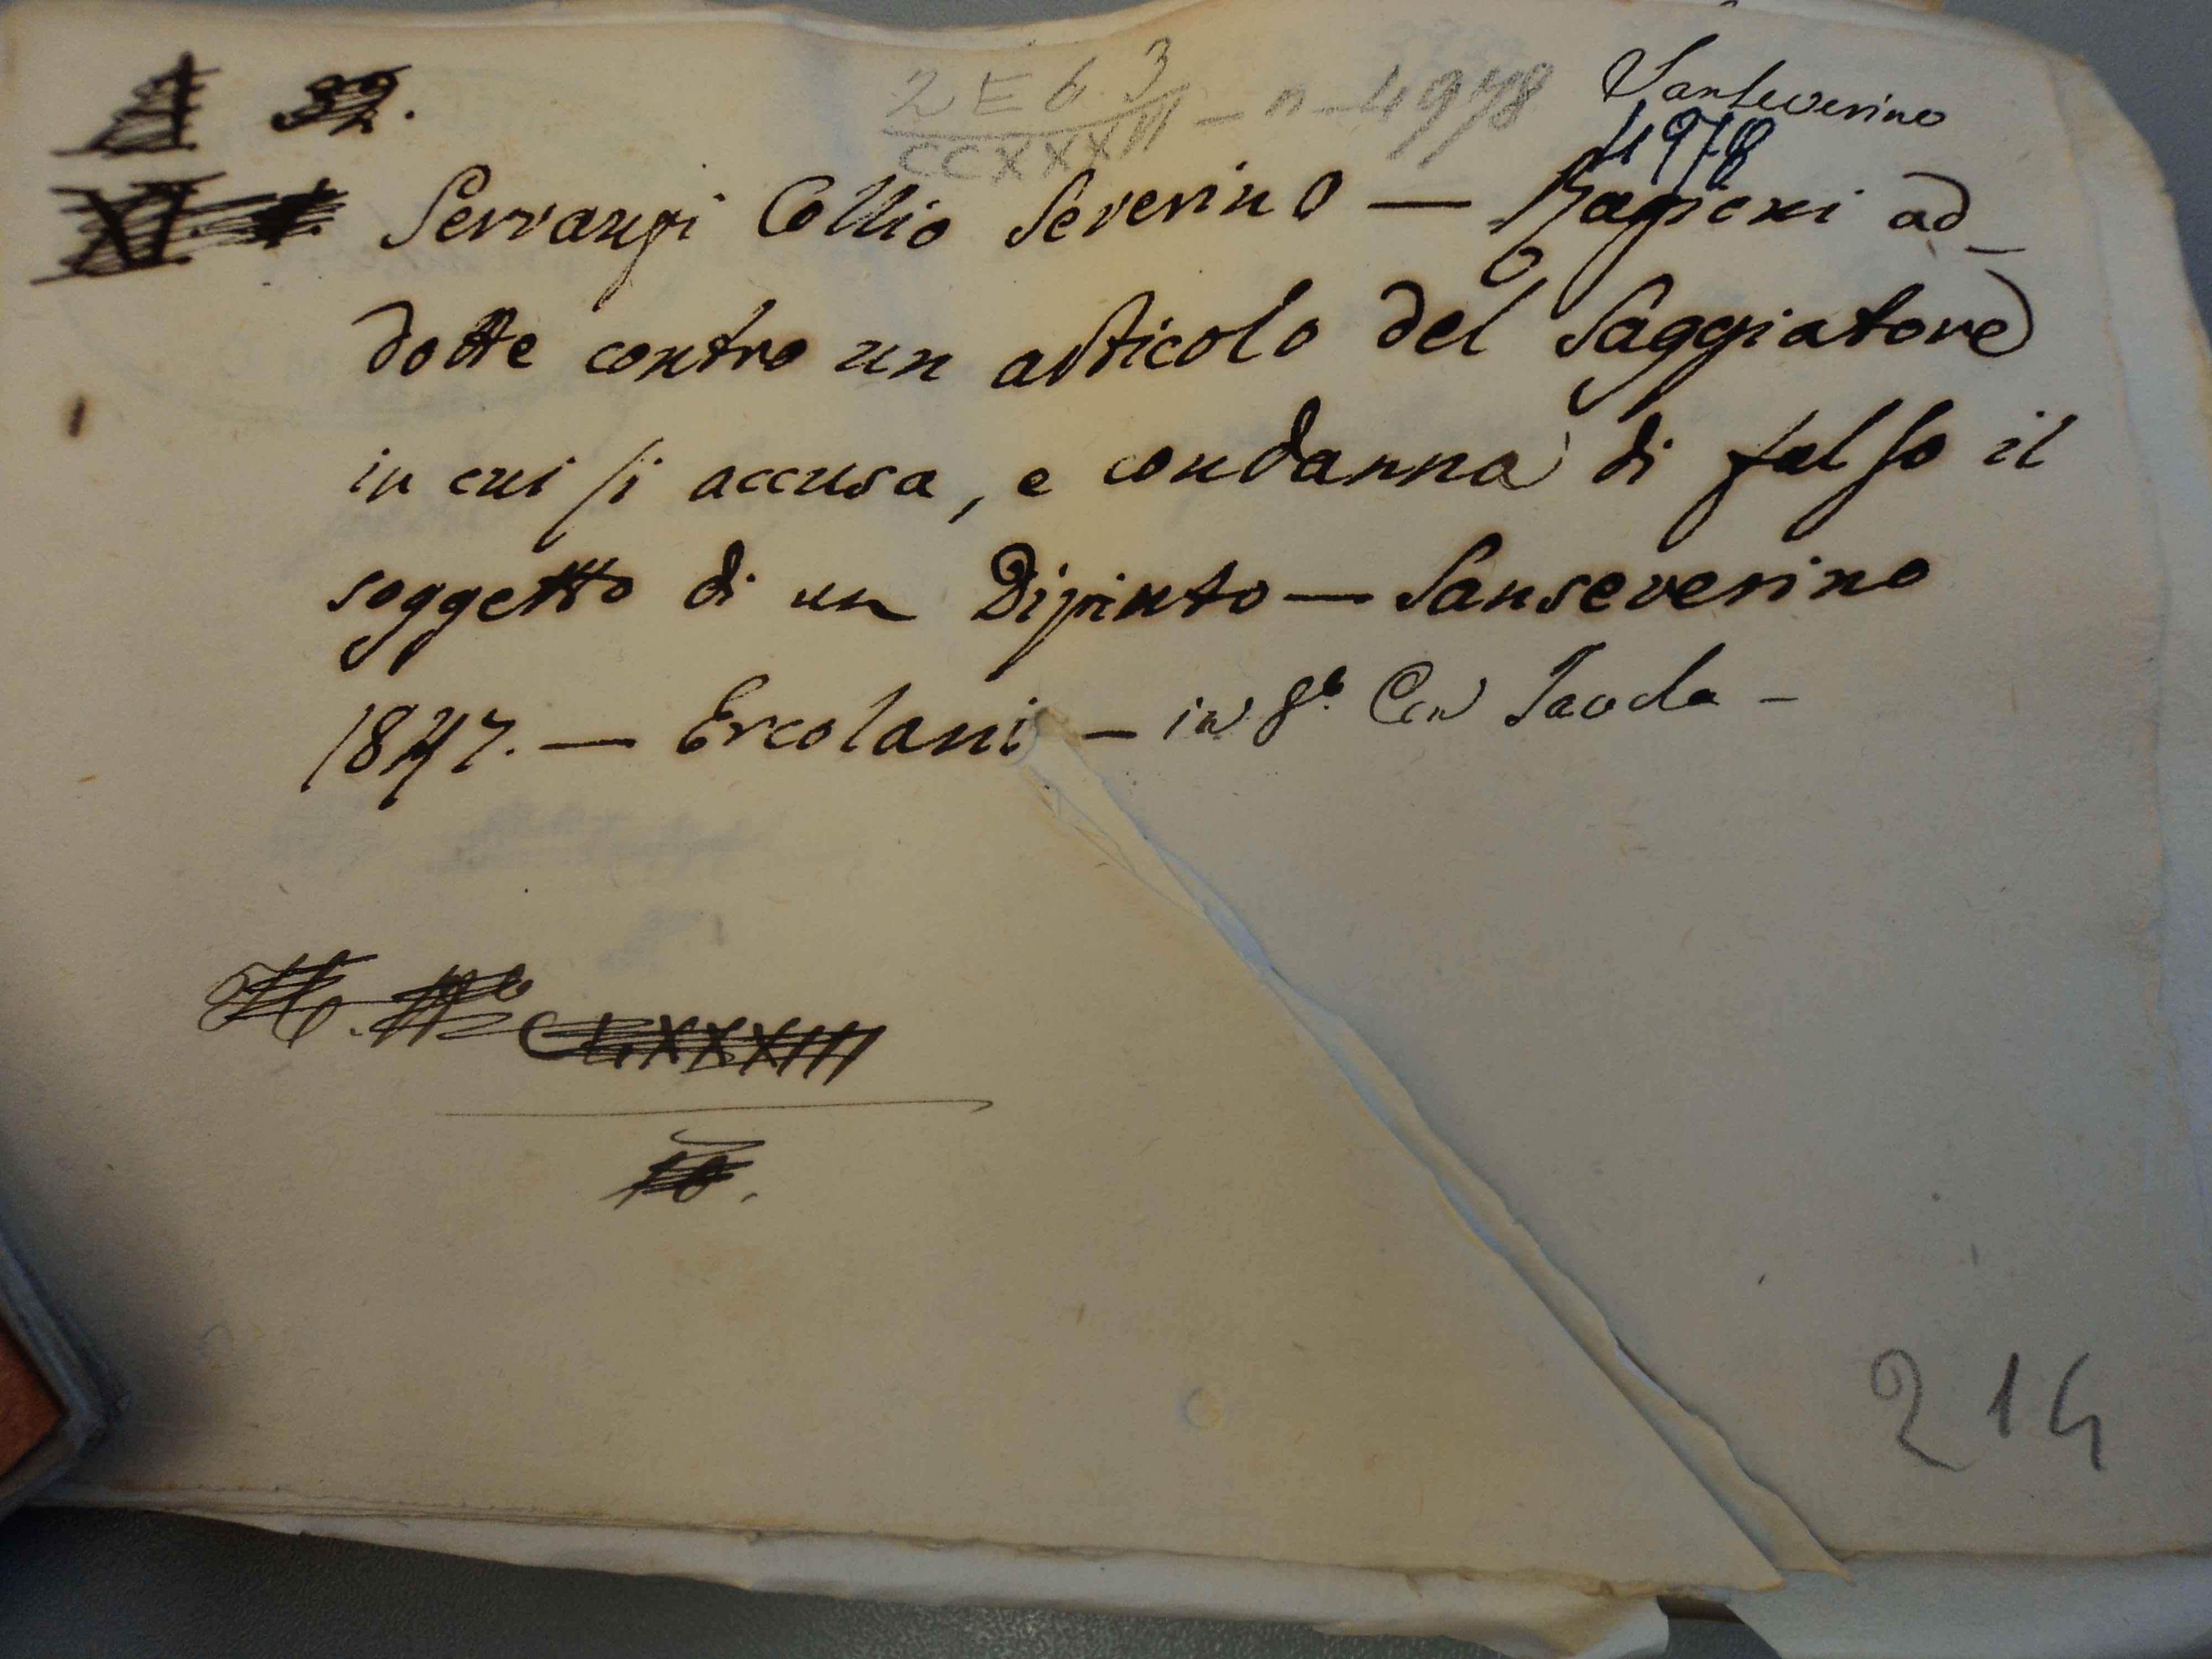 32.
2 E 6. 3
CCXXXIII - n - 4978
Sanseverino
4978
XI
Servanzi Collio Severino — Ragioni ad_
dotte contro un articolo del Saggiatore
in cui si accusa, e condanna di falso il
soggetto di un Dipinto — Sanseverino
1847. — Ercolani — in 8° Con Tavola —
CLXXXIII
10.
214